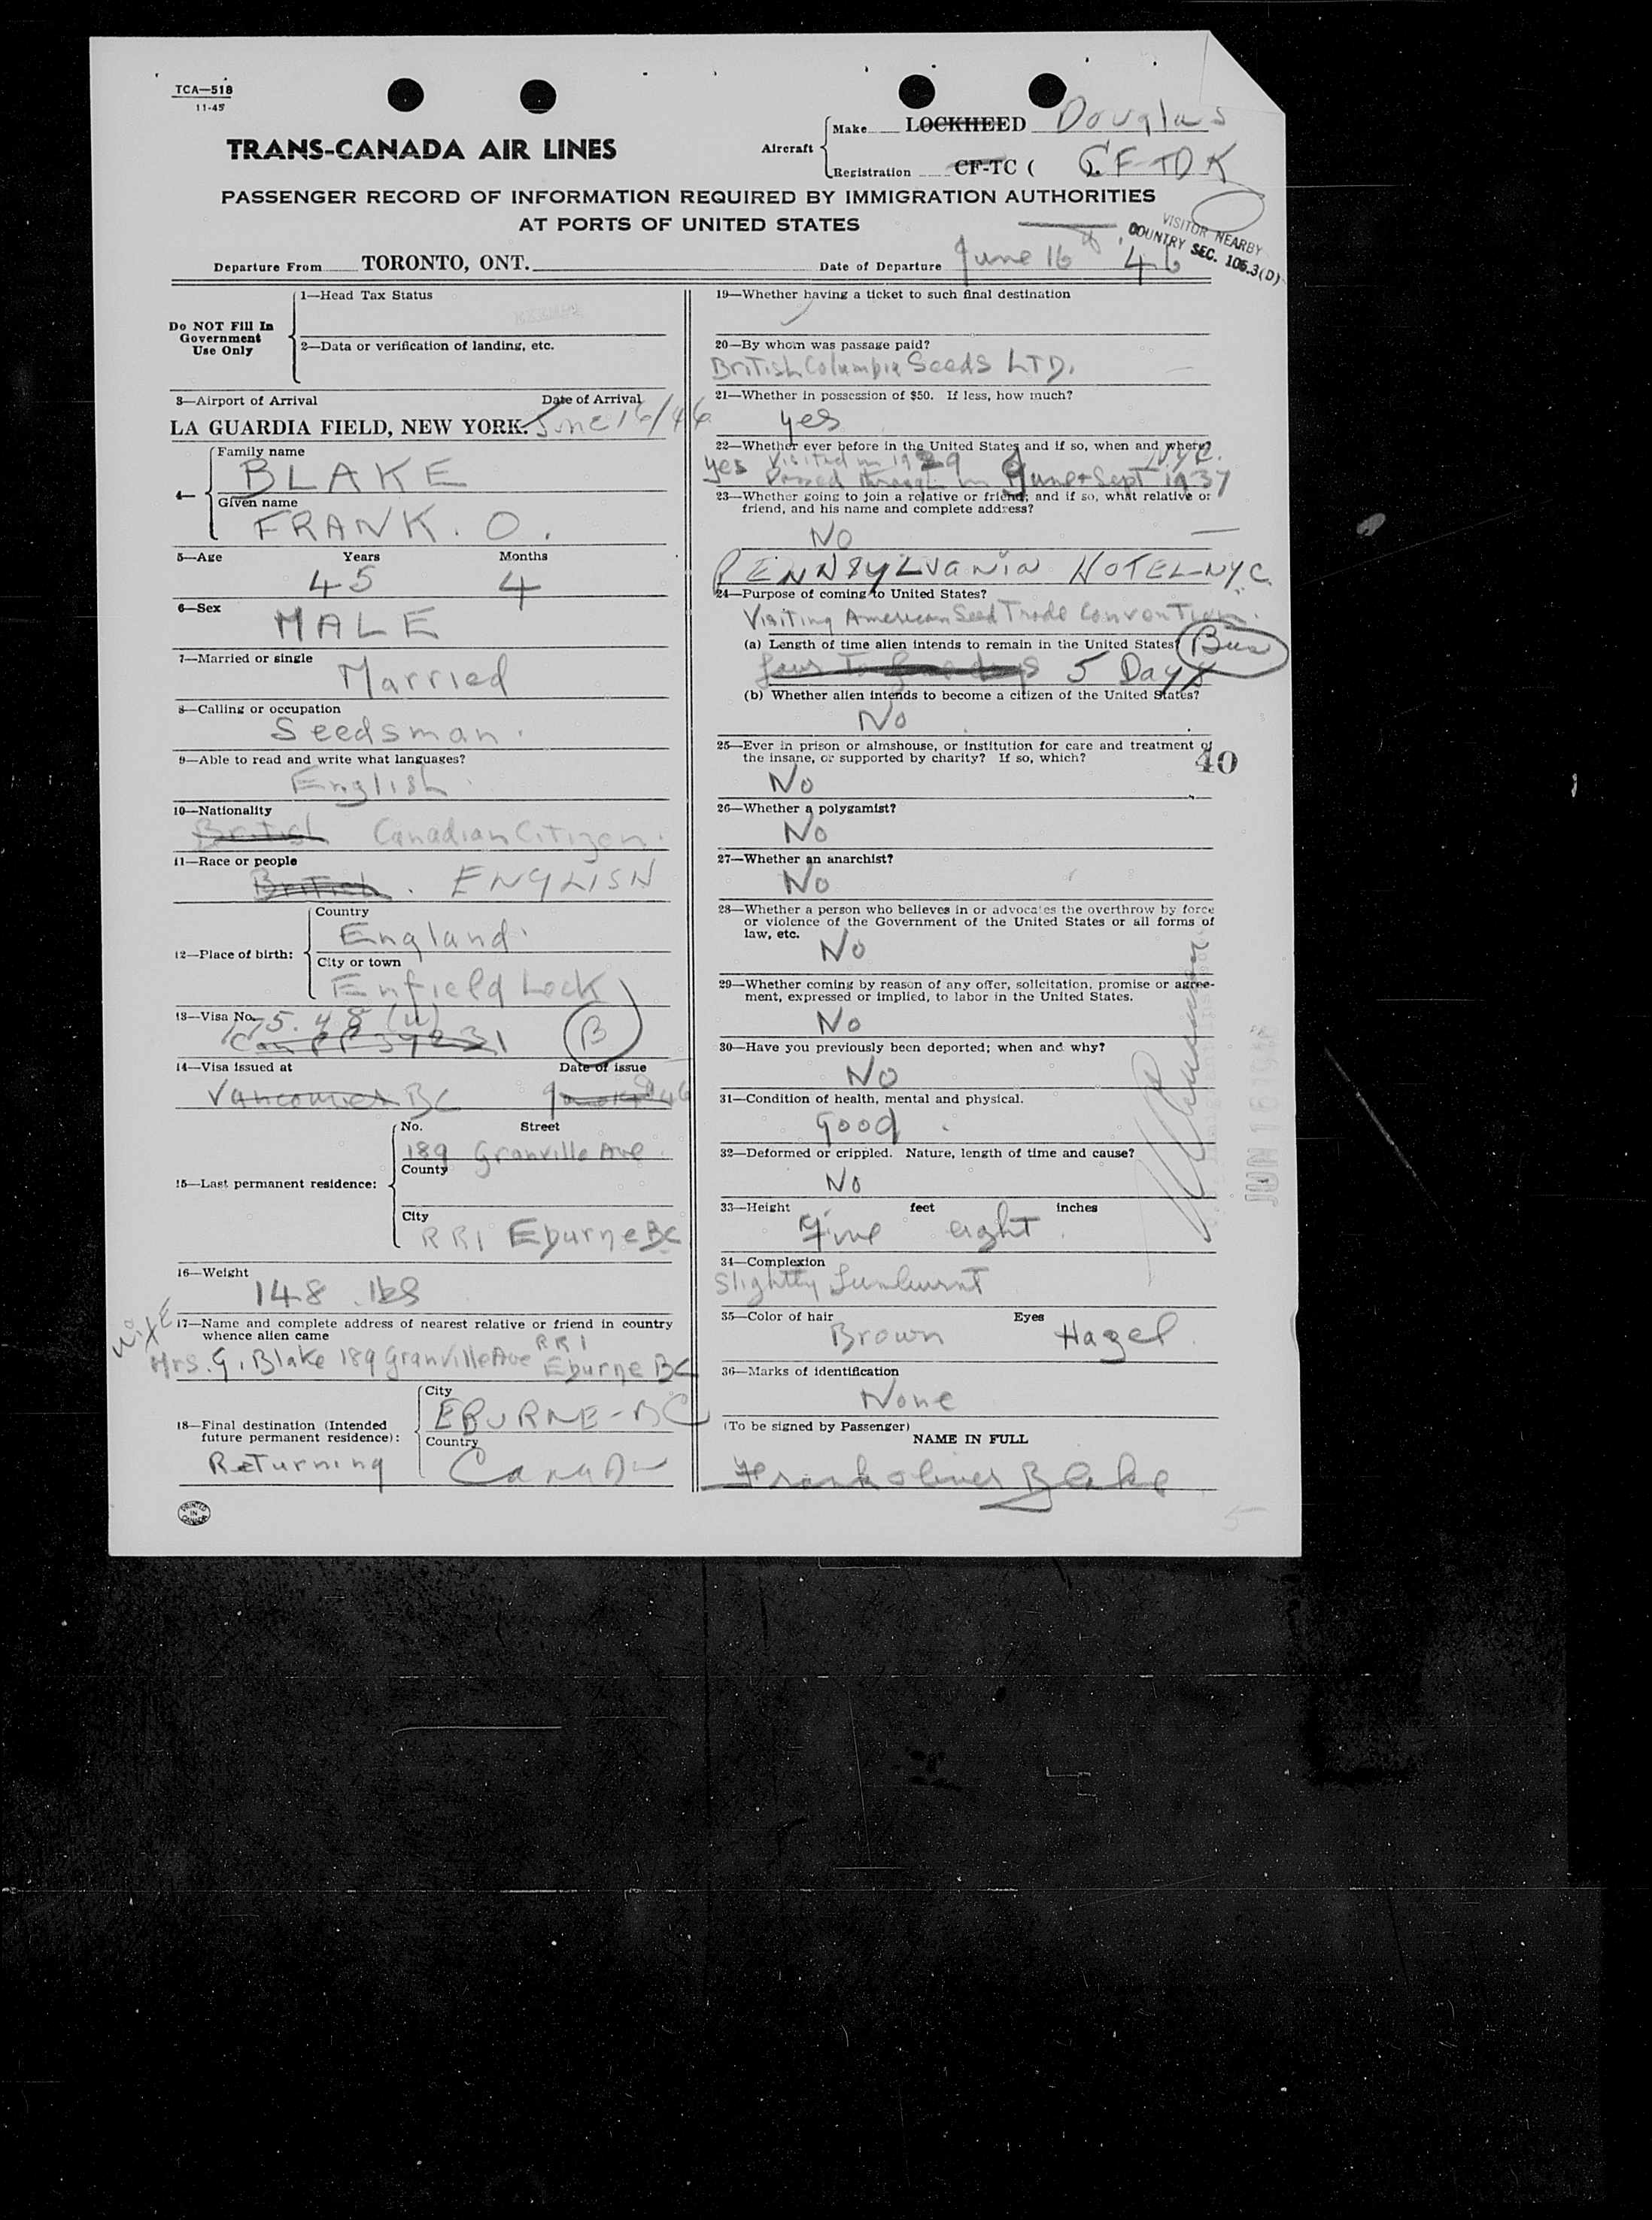 TCA—518
11-45
TRANS-CANADA AIR LINES
Aircraft
Make LOCKHEED Douglas
Registration CF-TC ( CF-TDK
PASSENGER RECORD OF INFORMATION REQUIRED BY IMMIGRATION AUTHORITIES
AT PORTS OF UNITED STATES
VISITOR NEARBY
COUNTRY SEC. 106.3(D)
Departure From TORONTO, ONT. Date of Departure June 16 46
Do NOT Fill In
Government
Use Only
1—Head Tax Status
2—Data or verification of landing, etc.
3—Airport of Arrival Date of Arrival
LA GUARDIA FIELD, NEW YORK. June 16/46
4—
Family name
BLAKE
Given name
FRANK. O.
5—Age Years Months
45 4
6—Sex
MALE
7—Married or single
Married
8—Calling or occupation
Seedsman.
9—Able to read and write what languages?
English
10—Nationality
British Canadian Citizen.
11—Race or people
British. ENGLISH
12—Place of birth:
Country
England
City or town
Enfield Lock
13—Visa No.
175.48 (u)
Can PP 39231 B
14—Visa issued at Date of issue
Vancouver BC 46
15—Last permanent residence:
No. Street
189 Granville Ave.
County
City
RR1 Eburne BC
16—Weight
148 lbs
17—Name and complete address of nearest relative or friend in country
whence alien came
WIFE
RR1
Mrs. G. Blake 189 Granville Ave Eburne BC
18—Final destination (Intended
future permanent residence):
City
EBURNE-BC
Country
Returning Canada
PRINTED
IN
CANADA
19—Whether having a ticket to such final destination
20—By whom was passage paid?
British Columbia Seeds LTD.
21—Whether in possession of $50. If less, how much?
yes
22—Whether ever before in the United States and if so, when and where?
yes Visited in 1929 NYC.
Passed through in June & Sept 1937
23—Whether going to join a relative or friend; and if so, what relative or
friend, and his name and complete address?
No
PENNSYLVANIA HOTEL NYC.
24—Purpose of coming to United States?
Visiting American Seed Trade Convention.
(a) Length of time alien intends to remain in the United States? Bus
four To five days 5 Days
(b) Whether alien intends to become a citizen of the United States?
No
25—Ever in prison or almshouse, or institution for care and treatment of
the insane, or supported by charity? If so, which?
40
No
26—Whether a polygamist?
No
27—Whether an anarchist?
No
28—Whether a person who believes in or advocates the overthrow by force
or violence of the Government of the United States or all forms of
law, etc.
No
29—Whether coming by reason of any offer, solicitation, promise or agree-
ment, expressed or implied, to labor in the United States.
No
30—Have you previously been deported; when and why?
No
31—Condition of health, mental and physical.
Good.
32—Deformed or crippled. Nature, length of time and cause?
No
33—Height feet inches
Five eight
34—Complexion
Slightly Sunburnt
35—Color of hair Eyes
Brown Hazel
36—Marks of identification
None
(To be signed by Passenger)
NAME IN FULL
Frank Oliver Blake